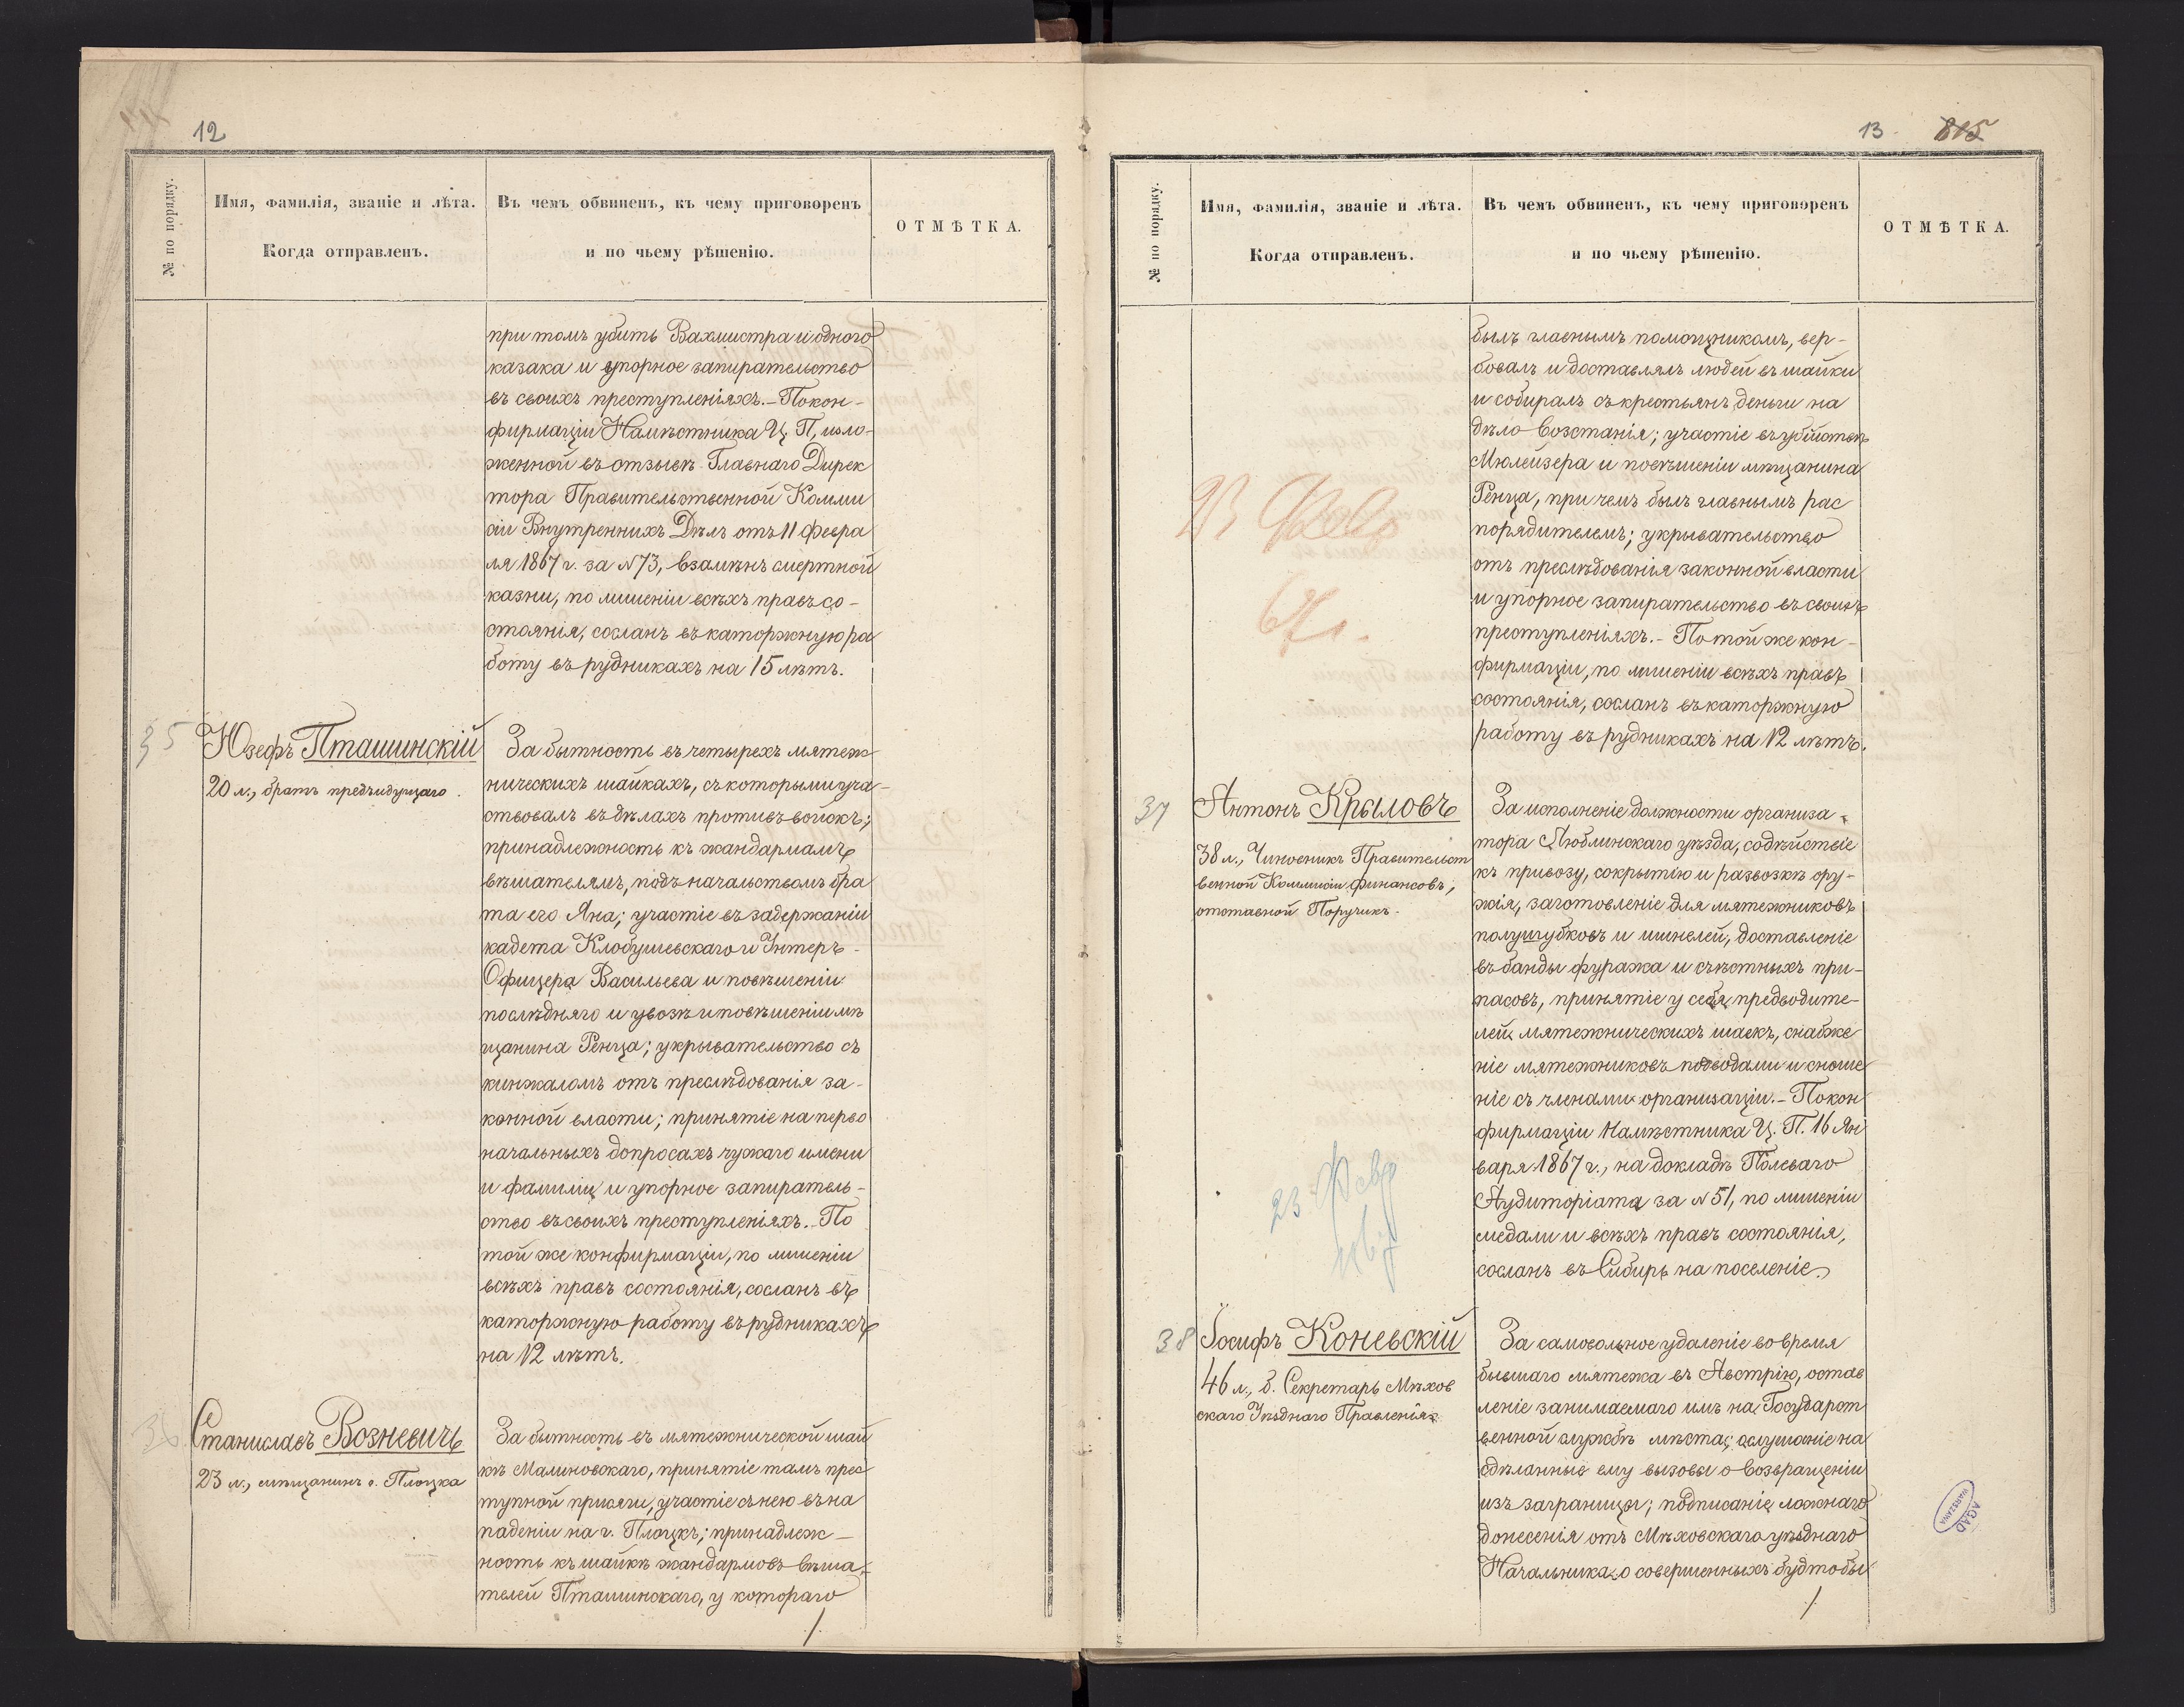 12
№ по порядку.
Имя, фамилія, званіе и лѣта.
Когда отправленъ.
Въ чемъ обвиненъ, къ чему приговоренъ
и по чьему рѣшенію.
ОТМѢТКА.
при томъ убить Вахмистра и одного
казака и упорное запирательство
въ своихъ преступленіяхъ. – По кон-
фирмаціи Намѣстника Ц. П., изло-
женной въ отзывѣ Главнаго Дирек
тора Правительственной Комми
сіи Внутреннихъ Дѣлъ отъ 11 Февра
ля 1867 г. за N 73, взамѣнъ смертной
казни, по лишеніи всѣхъ правъ со-
стоянія, сосланъ въ каторжную ра
боту въ рудникахъ на 15 лѣтъ.
35
Юзефъ Пташинскій
20 л., братъ предъидущаго.
За бытность въ четырехъ мятеж
ническихъ шайкахъ, съ которыми уча-
ствовалъ въ дѣлахъ противъ войскъ;
принадлежность къ жандармамъ
вѣшателямъ, подъ начальствомъ бра
та его Яна; участіе въ задержаніи
кадета Клобушевскаго и Унтеръ-
Офицера Васильева и повѣшеніи
послѣдняго и увозѣ и повѣшеніи мѣ
щанина Ренца; укрывательство съ
кинжаломъ отъ преслѣдованія за-
конной власти; принятіе на перво
начальныхъ допросахъ чужаго имени
и фамиліи и упорное запиратель-
ство въ своихъ преступленіяхъ. – По
той же конфирмаціи, по лишеніи
всѣхъ правъ состоянія, сосланъ въ
каторжную работу въ рудникахъ
на 12 лѣтъ.
36
Станиславъ Возневичъ
23 л., мѣщанинъ г. Плоцка
За бытность въ мятежнической шай
кѣ Малиновскаго, принятіе тамъ прес
тупной присяги, участіе съ нею въ на
паденіи на г. Плоцкъ; принадлеж-
ность къ шайкѣ жандармовъ вѣша-
телей Пташинскаго, у котораго
/.
13.
815
№ по порядку.
Имя, фамилія, званіе и лѣта.
Когда отправленъ.
Въ чемъ обвиненъ, къ чему приговоренъ
и по чьему рѣшенію.
ОТМѢТКА.
былъ главнымъ помощникомъ, вер-
бовалъ и доставлялъ людей въ шайки
и собиралъ съ крестьянъ деньги на
дѣло возстанія; участіе въ убійствѣ
Мюлейзера и повѣшеніи мѣщанина
Ренца, при чемъ былъ главнымъ рас
порядителемъ; укрывательство
отъ преслѣдованія законной власти
и упорное запирательство въ своихъ
преступленіяхъ. – По той же кон-
фирмаціи, по лишеніи всѣхъ правъ
состоянія, сосланъ въ каторжную
работу въ рудникахъ на 12 лѣтъ.
23 Февр
67 г.
37
Антонъ Крыловъ
38 л., Чиновникъ Правительст
венной Коммисіи финансовъ,
отставной Поручикъ.
За исполненіе должности организа-
тора Люблинскаго уѣзда, содѣйствіе
къ привозу, сокрытію и развозкѣ ору-
жія, заготовленіе для мятежниковъ
полушубковъ и шинелей, доставленіе
въ банды фуража и съѣстныхъ при-
пасовъ, принятіе у себя предводите-
лей мятежническихъ шаекъ, снабже
ніе мятежниковъ подводами и сноше
ніе съ членами организаціи. – По кон
фирмаціи Намѣстника Ц. П. 16 Ян
варя 1867 г., на докладѣ Полеваго
Аудиторіата за N 51, по лишеніи
медали и всѣхъ правъ состоянія,
сосланъ въ Сибирь на поселеніе.
23 Февр
38
Іосифъ Коневскій
46 л., б. Секретарь Мѣхов
скаго Уѣзднаго Правленія
За самовольное удаленіе во время
бывшаго мятежа въ Австрію, остав
леніе занимаемаго имъ на Государст
венной службѣ мѣста; ослушаніе на
сдѣланные ему вызовы о возвращеніи
изъ заграницы; подписаніе ложнаго
донесенія отъ Мѣховскаго уѣзднаго
Начальника, о совершенныхъ будто бы
/.
AGAD
WARSZAWA